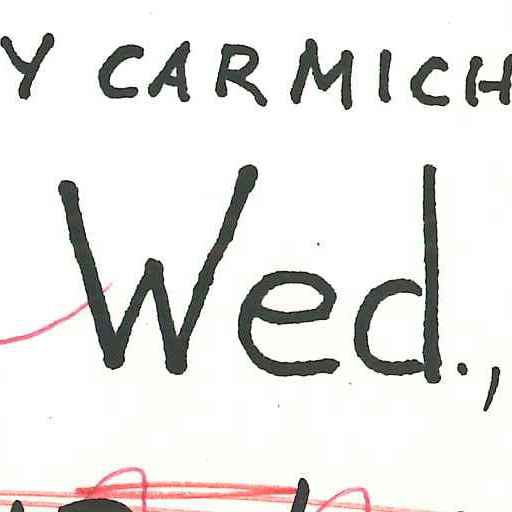 Y CARMICH
Wed.,